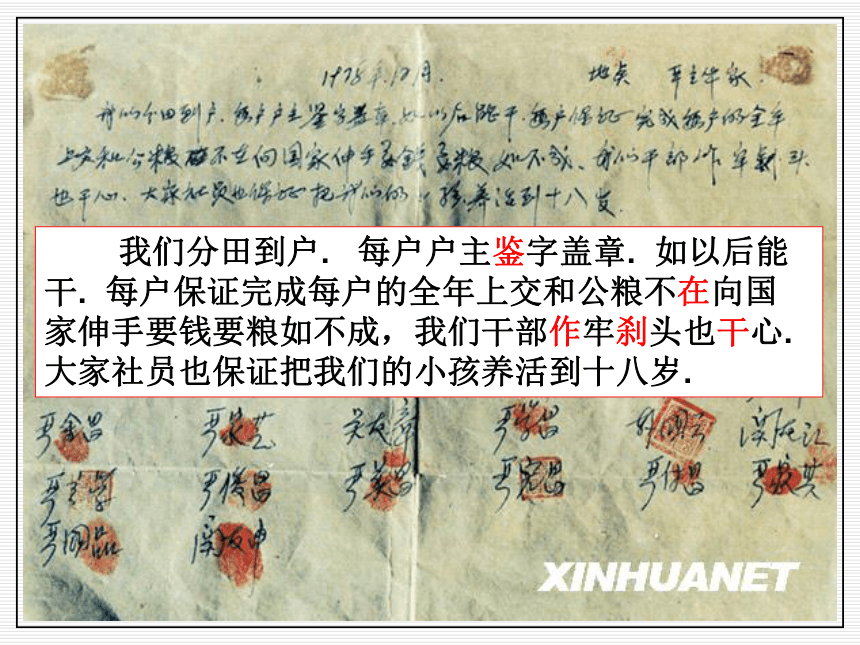 1978年12月. 地点 严立华家.
我们分田到户. 每户户主鉴字盖章. 如以后能干. 每户保证完成每户的全年
上交和公粮 不在向国家伸手要钱要粮 如不成. 我们干部作牢刹头
也干心. 大家社员也保证把我们的小孩养活到十八岁.
我们分田到户. 每户户主鉴字盖章. 如以后能
干. 每户保证完成每户的全年上交和公粮不在向国
家伸手要钱要粮如不成，我们干部作牢刹头也干心.
大家社员也保证把我们的小孩养活到十八岁.
严金昌 严家芝 关友章 严学昌 韩国云 关友江
严立学 严俊昌 严美昌 严宏昌 严付昌 严家其
严国品 关友申
XINHUANET